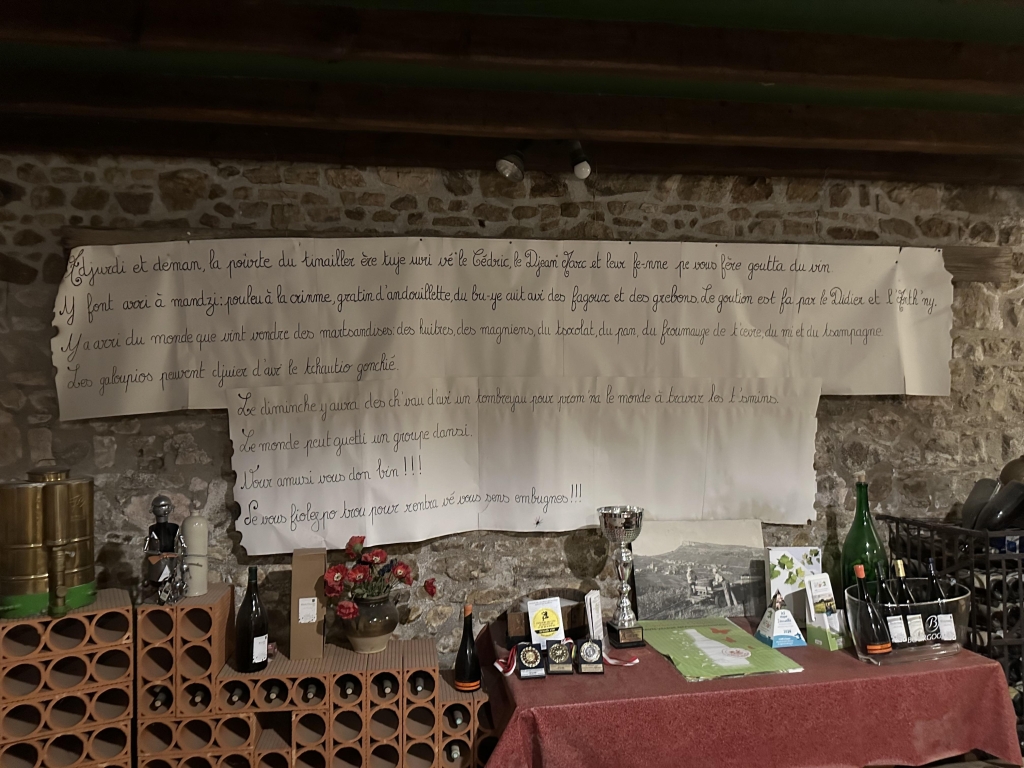 Adjurdi et deman, la poirte du tinailler ère tuje uvri vé le Cédric, le Djean Marc et leur fe-nne pe vous fére goutta du vin.
Y font arri à mandzi: pouleu à la crinme, gratin d'andouillette, du bu-ye cuit avé des fagoux et des grebons. Le goution est fa par le Didier et l'Anth'ny.
Y a arri du monde que vint vendre des martsandises: des huîtres, des magniens, du tsocolat, du pan, du froumauge de tsevre, du mi et du tsampagne.
Les galoupios peuvent djuier d'avé le tchautio gonchié.
Le diminche y aura des ch'vau d'avé un tombreyau pour prom'na le monde à travar les ts'mins.
Le monde peut guetti un groupe dansi.
Vour amusi vous don bin !!!
Se vous fiolez po trou pour rentra vé vous sens embugnes !!!
B